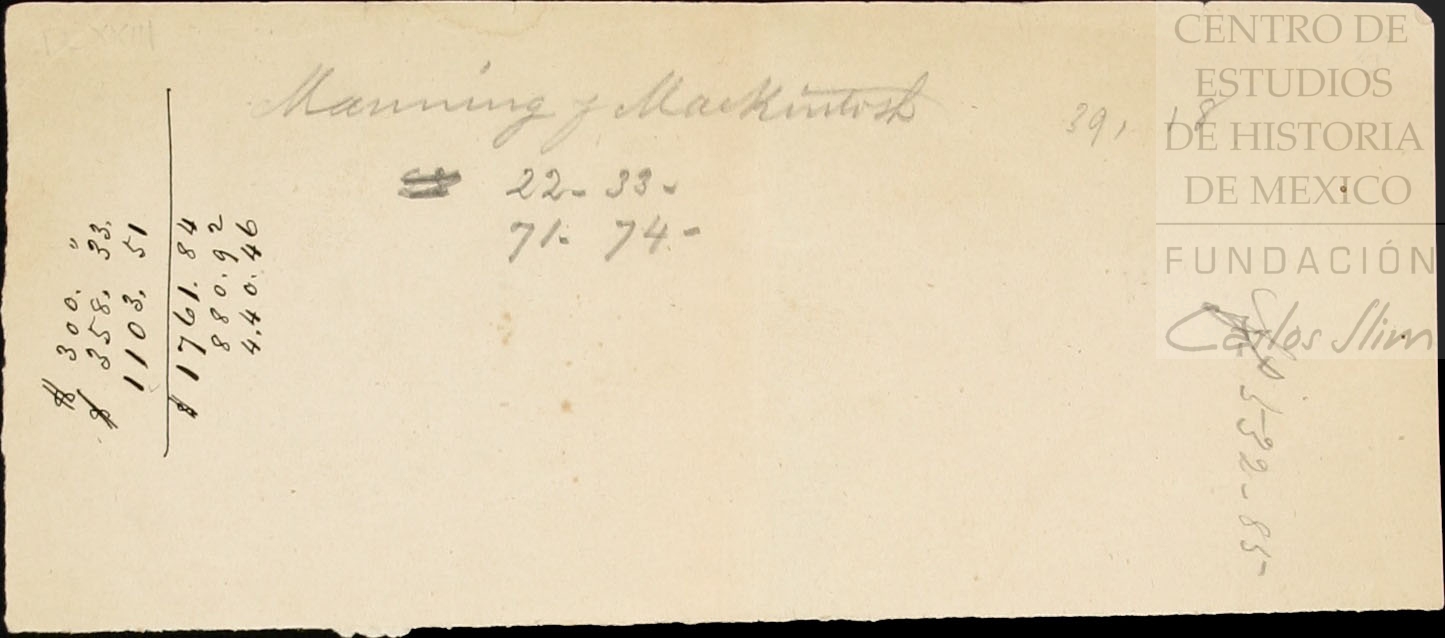 Manning y Mackintosh
39, 18
22- 33-
71- 74-
$ 300. "
$ 358, 33,
1103, 51
$ 1761. 84
880. 92
4.40. 46
532-85-
CENTRO DE
ESTUDIOS
DE HISTORIA
DE MEXICO
FUNDACIÓN
Carlos Slim